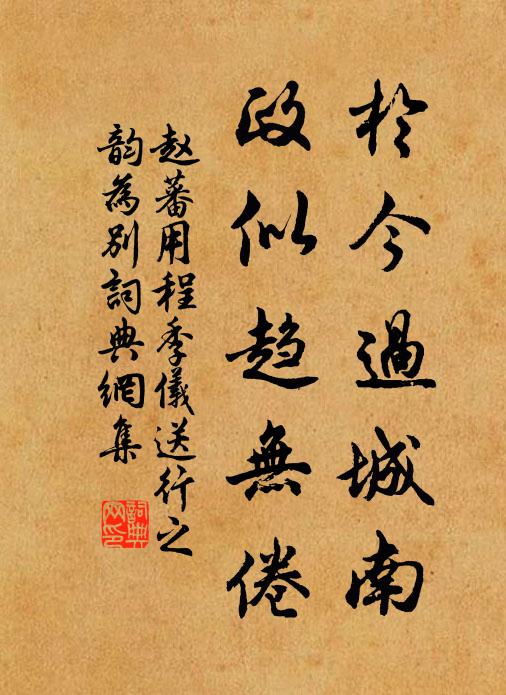 於今過城南
政似趋無倦
赵蕃用程季儀送行之
韵為别詞典網集
詞典網印